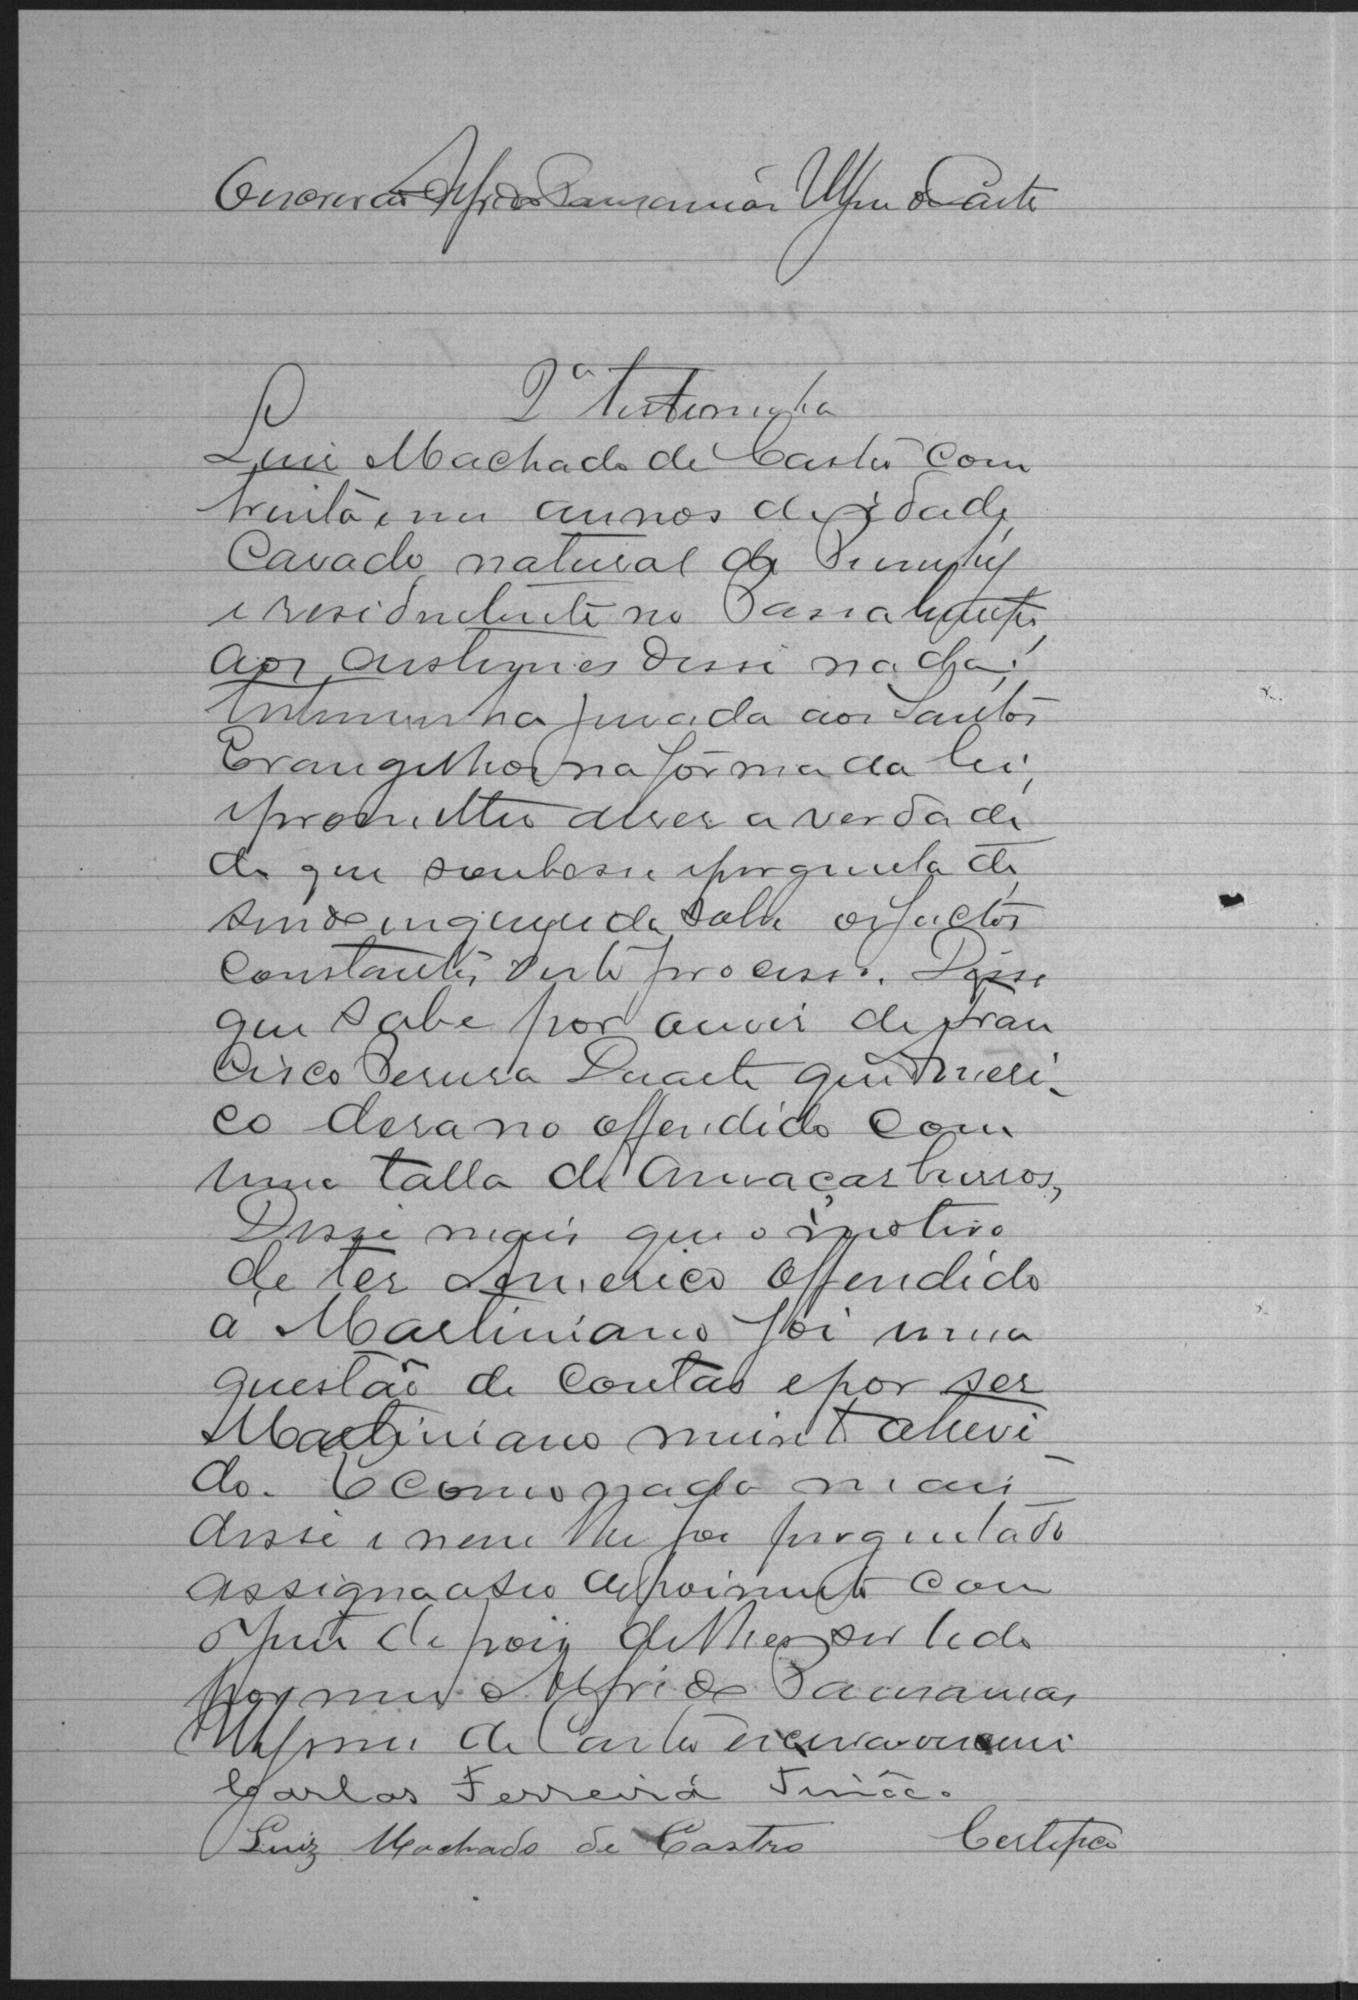 Escrivão Alfrido Damnamian
2ª testemunha
Luiz Machado de Castro com
trinta e um annos de idade,
Casado, natural de Piumhy
e residente no Passa
aos custumes disse nada;
testemunha jurada aos Santos
Evangelhos na fórma da lei,
e prometteu diser a verdade
do que soubesse e perguntado
sendo inquerida sobre os factos
constantes deste processo. Disse
que sabe por ouvir de Fran
cisco Duarte que Ameri-
co dera no offendido com
uma talla de amaçar burros,
Disse mais que o motivo
de ter Americo offendido
a Martiniano foi uma
questão de contas e por ser
Martiniano muinto atrevi
do. E como nada mais
disse e nem lhe foi perguntado
assigna o seu depoimento com
o juiz depois de lhes ser lido
por mim Alfrido
de Castro escrivão
Carlos Ferreira
Luiz Machado de Castro Certifico